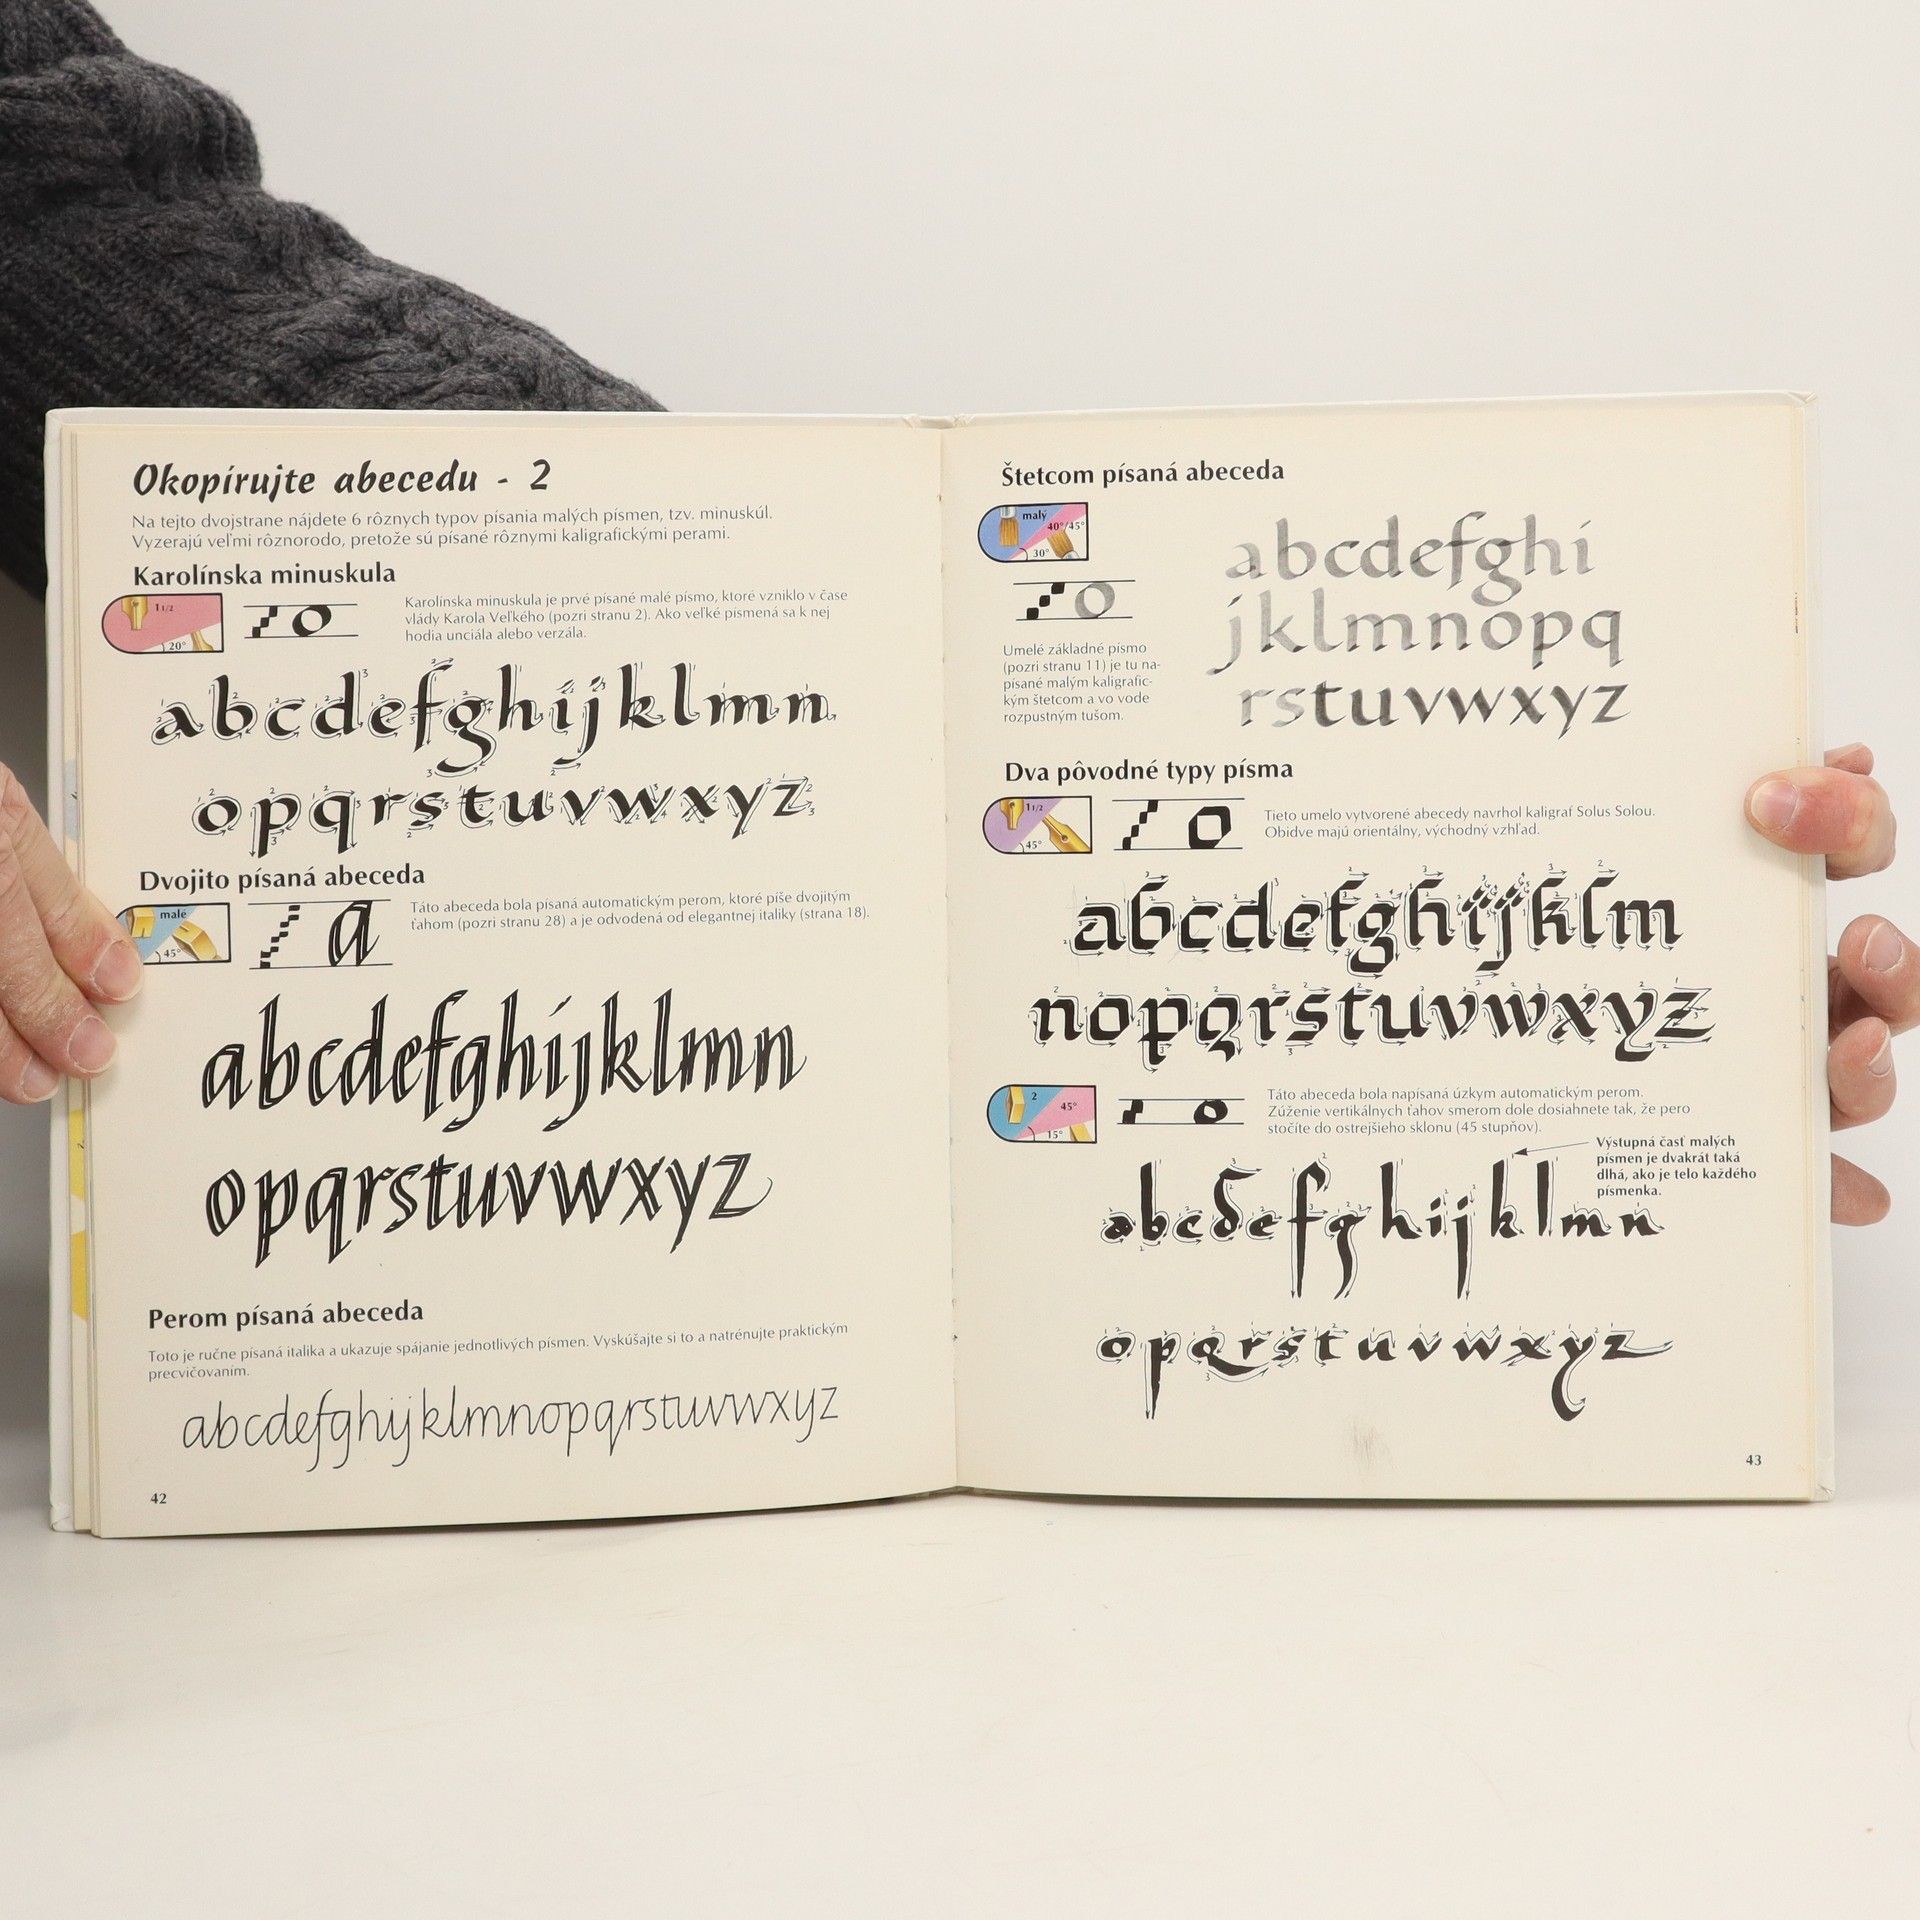 Okopírujte abecedu - 2
Na tejto dvojstrane nájdete 6 rôznych typov písania malých písmen, tzv. minuskúl.
Vyzerajú veľmi rôznorodo, pretože sú písané rôznymi kaligrafickými perami.
Karolínska minuskula
1 1/2
20°
o
Karolínska minuskula je prvé písané malé písmo, ktoré vzniklo v čase
vlády Karola Veľkého (pozri stranu 2). Ako veľké písmená sa k nej
hodia unciála alebo verzála.
abcdefghijklmn
opqrstuvwxyz
Dvojito písaná abeceda
malé
45°
a
Táto abeceda bola písaná automatickým perom, ktoré píše dvojitým
ťahom (pozri stranu 28) a je odvodená od elegantnej italiky (strana 18).
abcdefghijklmn
opqrstuvwxyz
Perom písaná abeceda
Toto je ručne písaná italika a ukazuje spájanie jednotlivých písmen. Vyskúšajte si to a natrénujte praktickým
precvičovaním.
abcdefghijklmnopqrstuvwxyz
42
Štetcom písaná abeceda
malý
40°/45°
30°
o
Umelé základné písmo
(pozri stranu 11) je tu na-
písané malým kaligrafic-
kým štetcom a vo vode
rozpustným tušom.
abcdefghi
jklmnopq
rstuvwxyz
Dva pôvodné typy písma
1 1/2
45°
o
Tieto umelo vytvorené abecedy navrhol kaligraf Solus Solou.
Obidve majú orientálny, východný vzhľad.
abcdefghijklm
nopqrstuvwxyz
2
45°
15°
o
Táto abeceda bola napísaná úzkym automatickým perom.
Zúženie vertikálnych ťahov smerom dole dosiahnete tak, že pero
stočíte do ostrejšieho sklonu (45 stupňov).
Výstupná časť malých
písmen je dvakrát taká
dlhá, ako je telo každého
písmenka.
abcdefghijklmn
opqrstuvwxyz
43